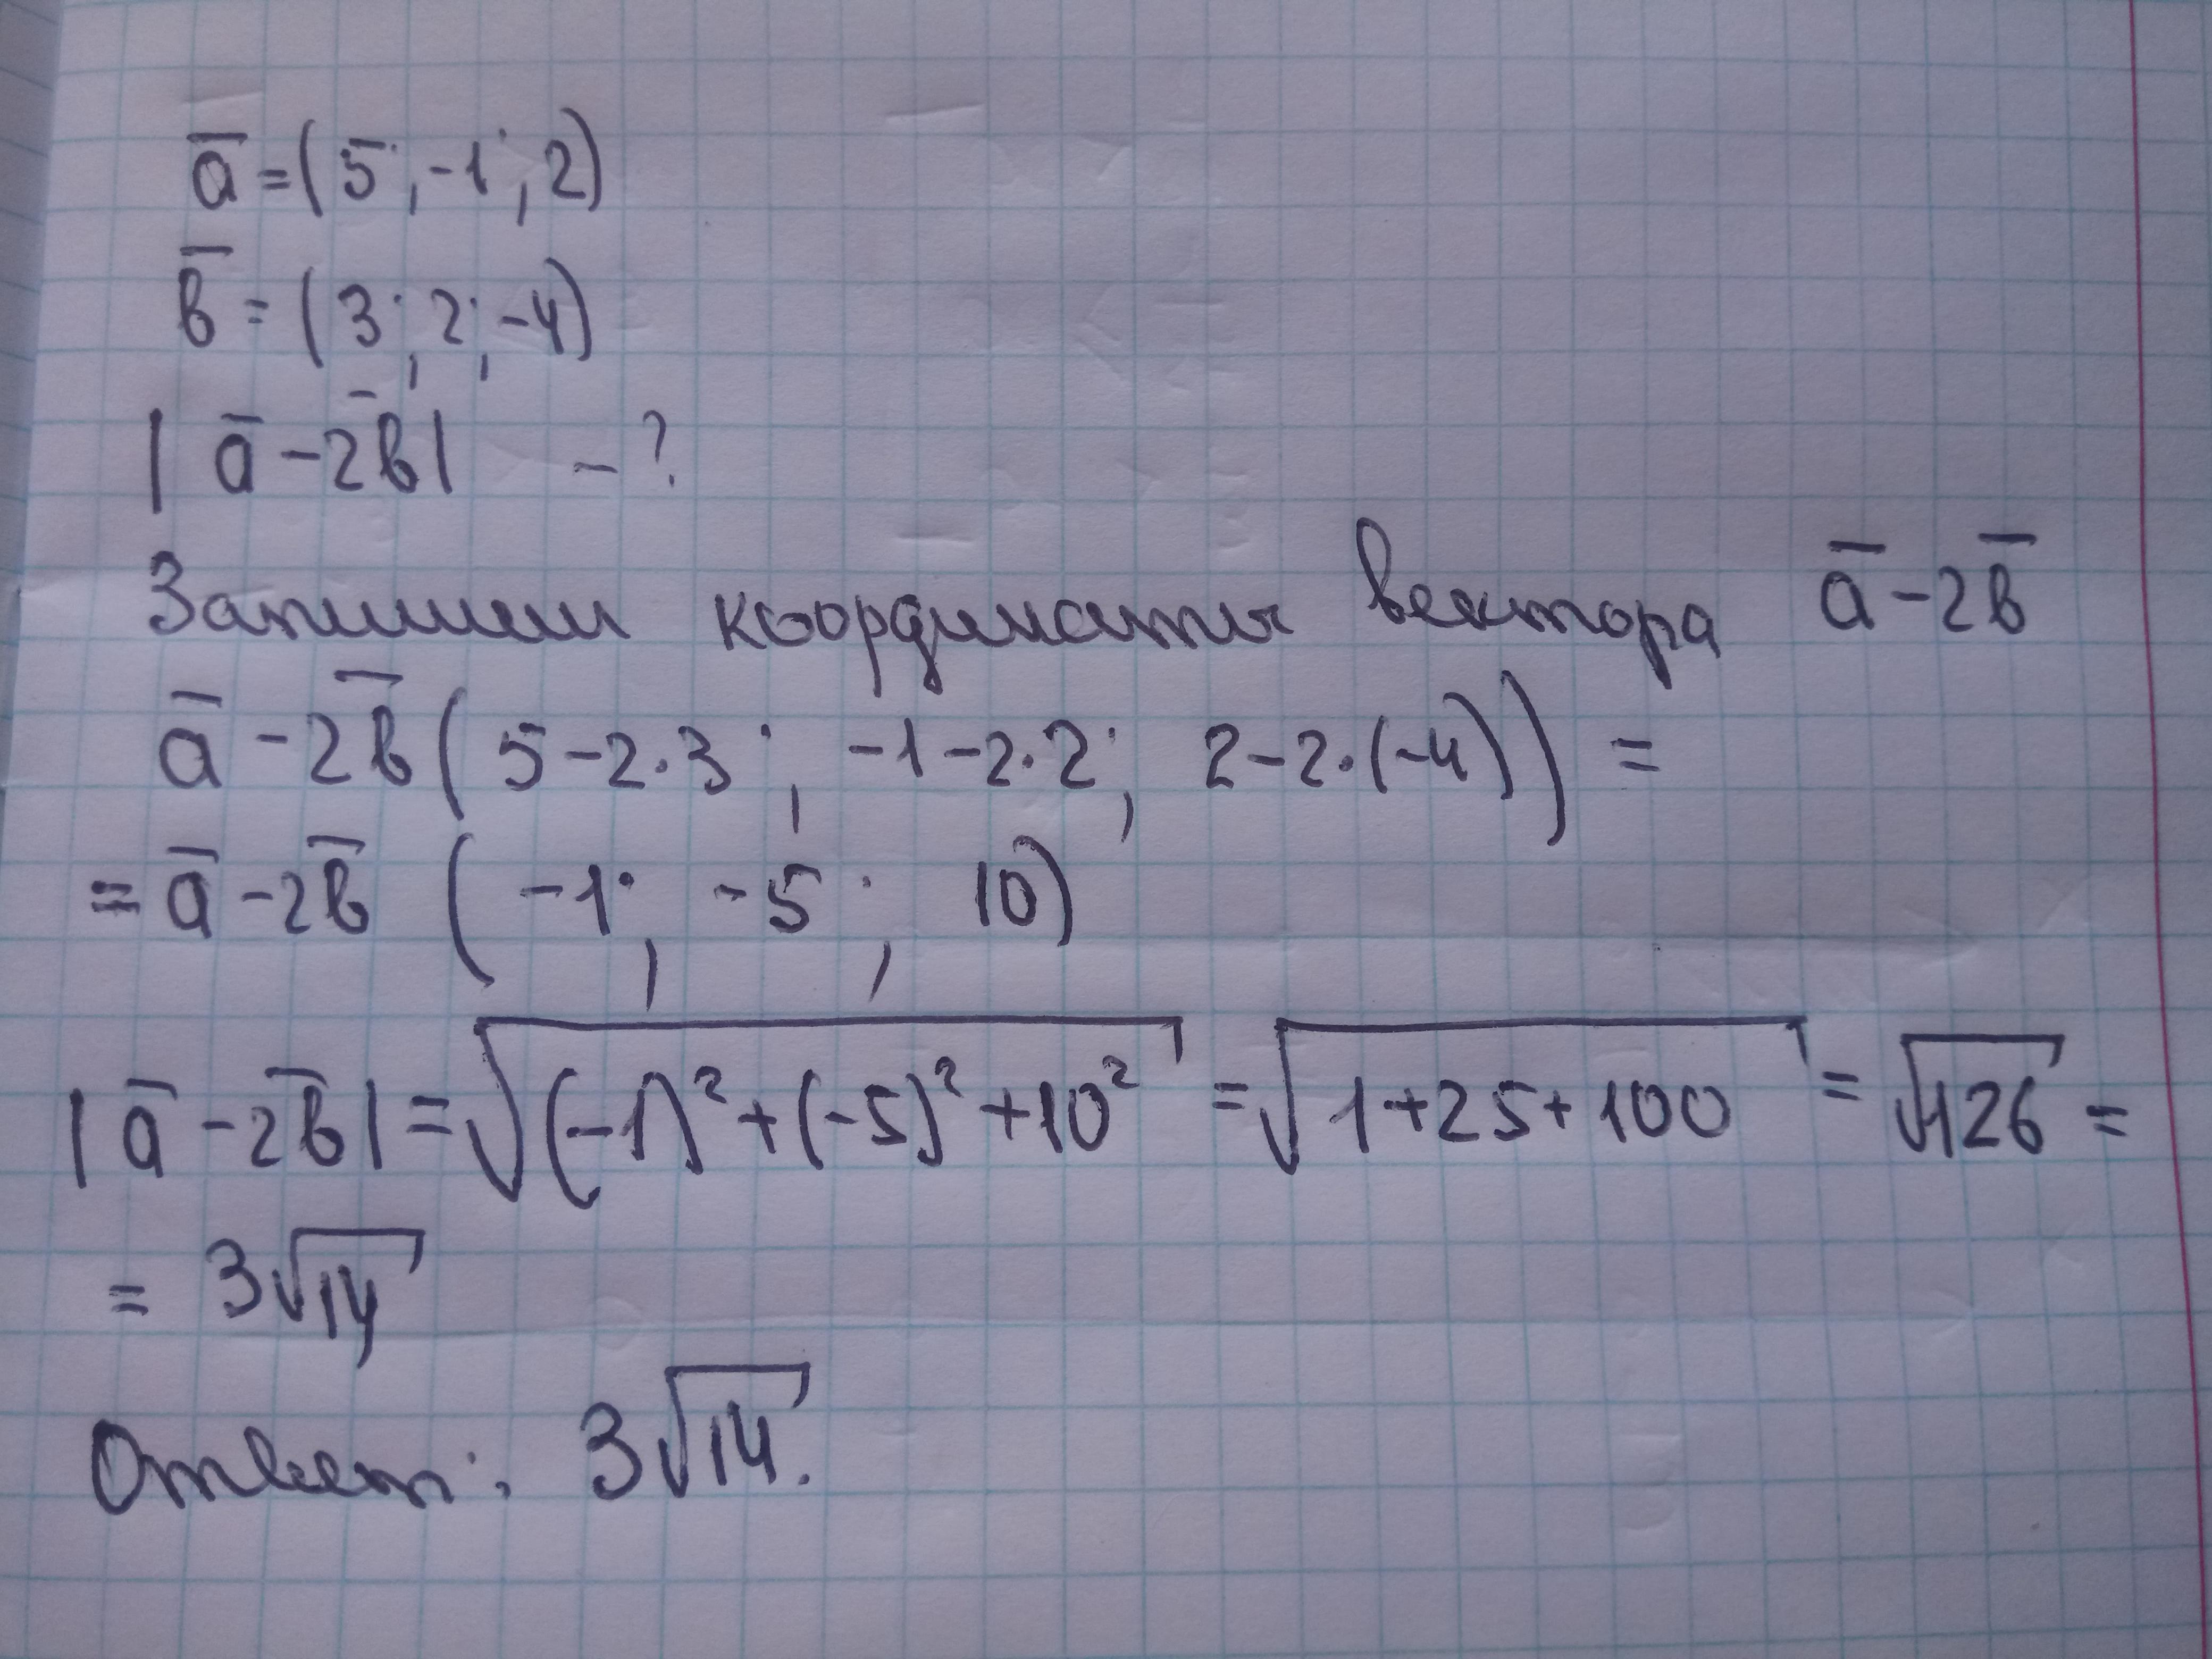 a̅ = (5; -1; 2)
в̅ = (3; 2; -4)
|a̅ - 2в̅| - ?
Запишем координаты вектора a̅ - 2в̅
a̅ - 2в̅ (5-2·3; -1-2·2; 2-2·(-4)) =
= a̅ - 2в̅ (-1; -5; 10)
|a̅ - 2в̅| = √((-1)² + (-5)² + 10²) = √(1+25+100) = √126 =
= 3√14
Ответ: 3√14.